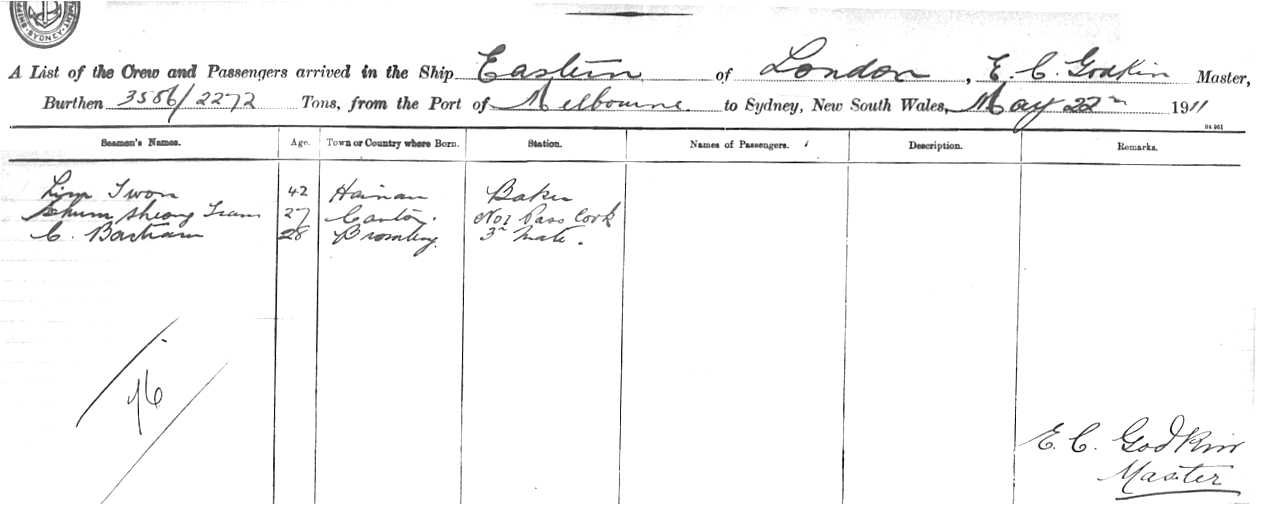 SYDNEY
A List of the Crew and Passengers arrived in the Ship Eastern of London, E. C. Godkin Master,
Burthen 3586/2272 Tons, from the Port of Melbourne to Sydney, New South Wales, May 22n 1911
Seamen's Names. Age. Town or Country where Born. Station. Names of Passengers. Description. Remarks.
42 Hainan Baker
27 Canton. No1 Pass Cook
C. Bartram 28 Bromley. 3r Mate.
E. C. Godkin
Master